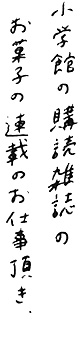 小学館の購読雑誌の
お菓子の連載のお仕事頂き、